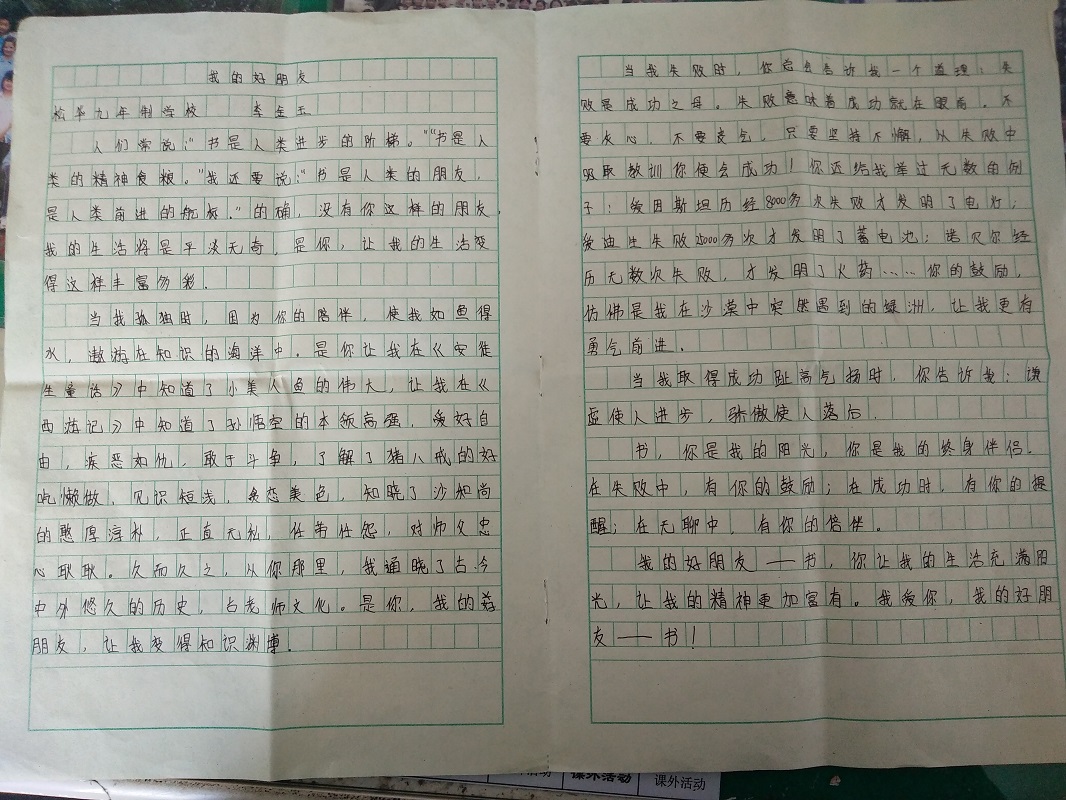 我的好朋友
松华九年制学校 李金玉
人们常说："书是人类进步的阶梯。""书是人
类的精神食粮。"我还要说："书是人类的朋友，
是人类前进的航标。"的确，没有你这样的朋友，
我的生活将是平淡无奇，是你，让我的生活变
得这样丰富多彩．
当我孤独时，因为你的陪伴，使我如鱼得
水，遨游在知识的海洋中．是你让我在《安徒
生童话》中知道了小美人鱼的伟大，让我在《
西游记》中知道了孙悟空的本领高强，爱好自
由，疾恶如仇，敢于斗争，了解了猪八戒的好
吃懒做，见识短浅，贪恋美色，知晓了沙和尚
的憨厚淳朴，正直无私，任劳任怨，对师父忠
心耿耿。久而久之，从你那里，我通晓了古今
中外悠久的历史，古老师文化。是你，我的好
朋友，让我变得知识渊博．
当我失败时，你总会告诉我一个道理：失
败是成功之母。失败意味着成功就在眼前．不
要灰心．不要丧气，只要坚持不懈，从失败中
吸取教训你便会成功！你还给我举过无数的例
子：爱因斯坦历经8000多次失败才发明了电灯；
爱迪生失败25000多次才发明了蓄电池；诺贝尔经
历无数次失败，才发明了火药……你的鼓励，
仿佛是我在沙漠中突然遇到的绿洲，让我更有
勇气前进．
当我取得成功趾高气扬时，你告诉我：谦
虚使人进步，骄傲使人落后．
书，你是我的阳光，你是我的终身伴侣。
在失败中，有你的鼓励；在成功时，有你的提
醒；在无聊中，有你的陪伴。
我的好朋友——书，你让我的生活充满阳
光，让我的精神更加富有。我爱你，我的好朋
友——书！
课外活动
课外活动